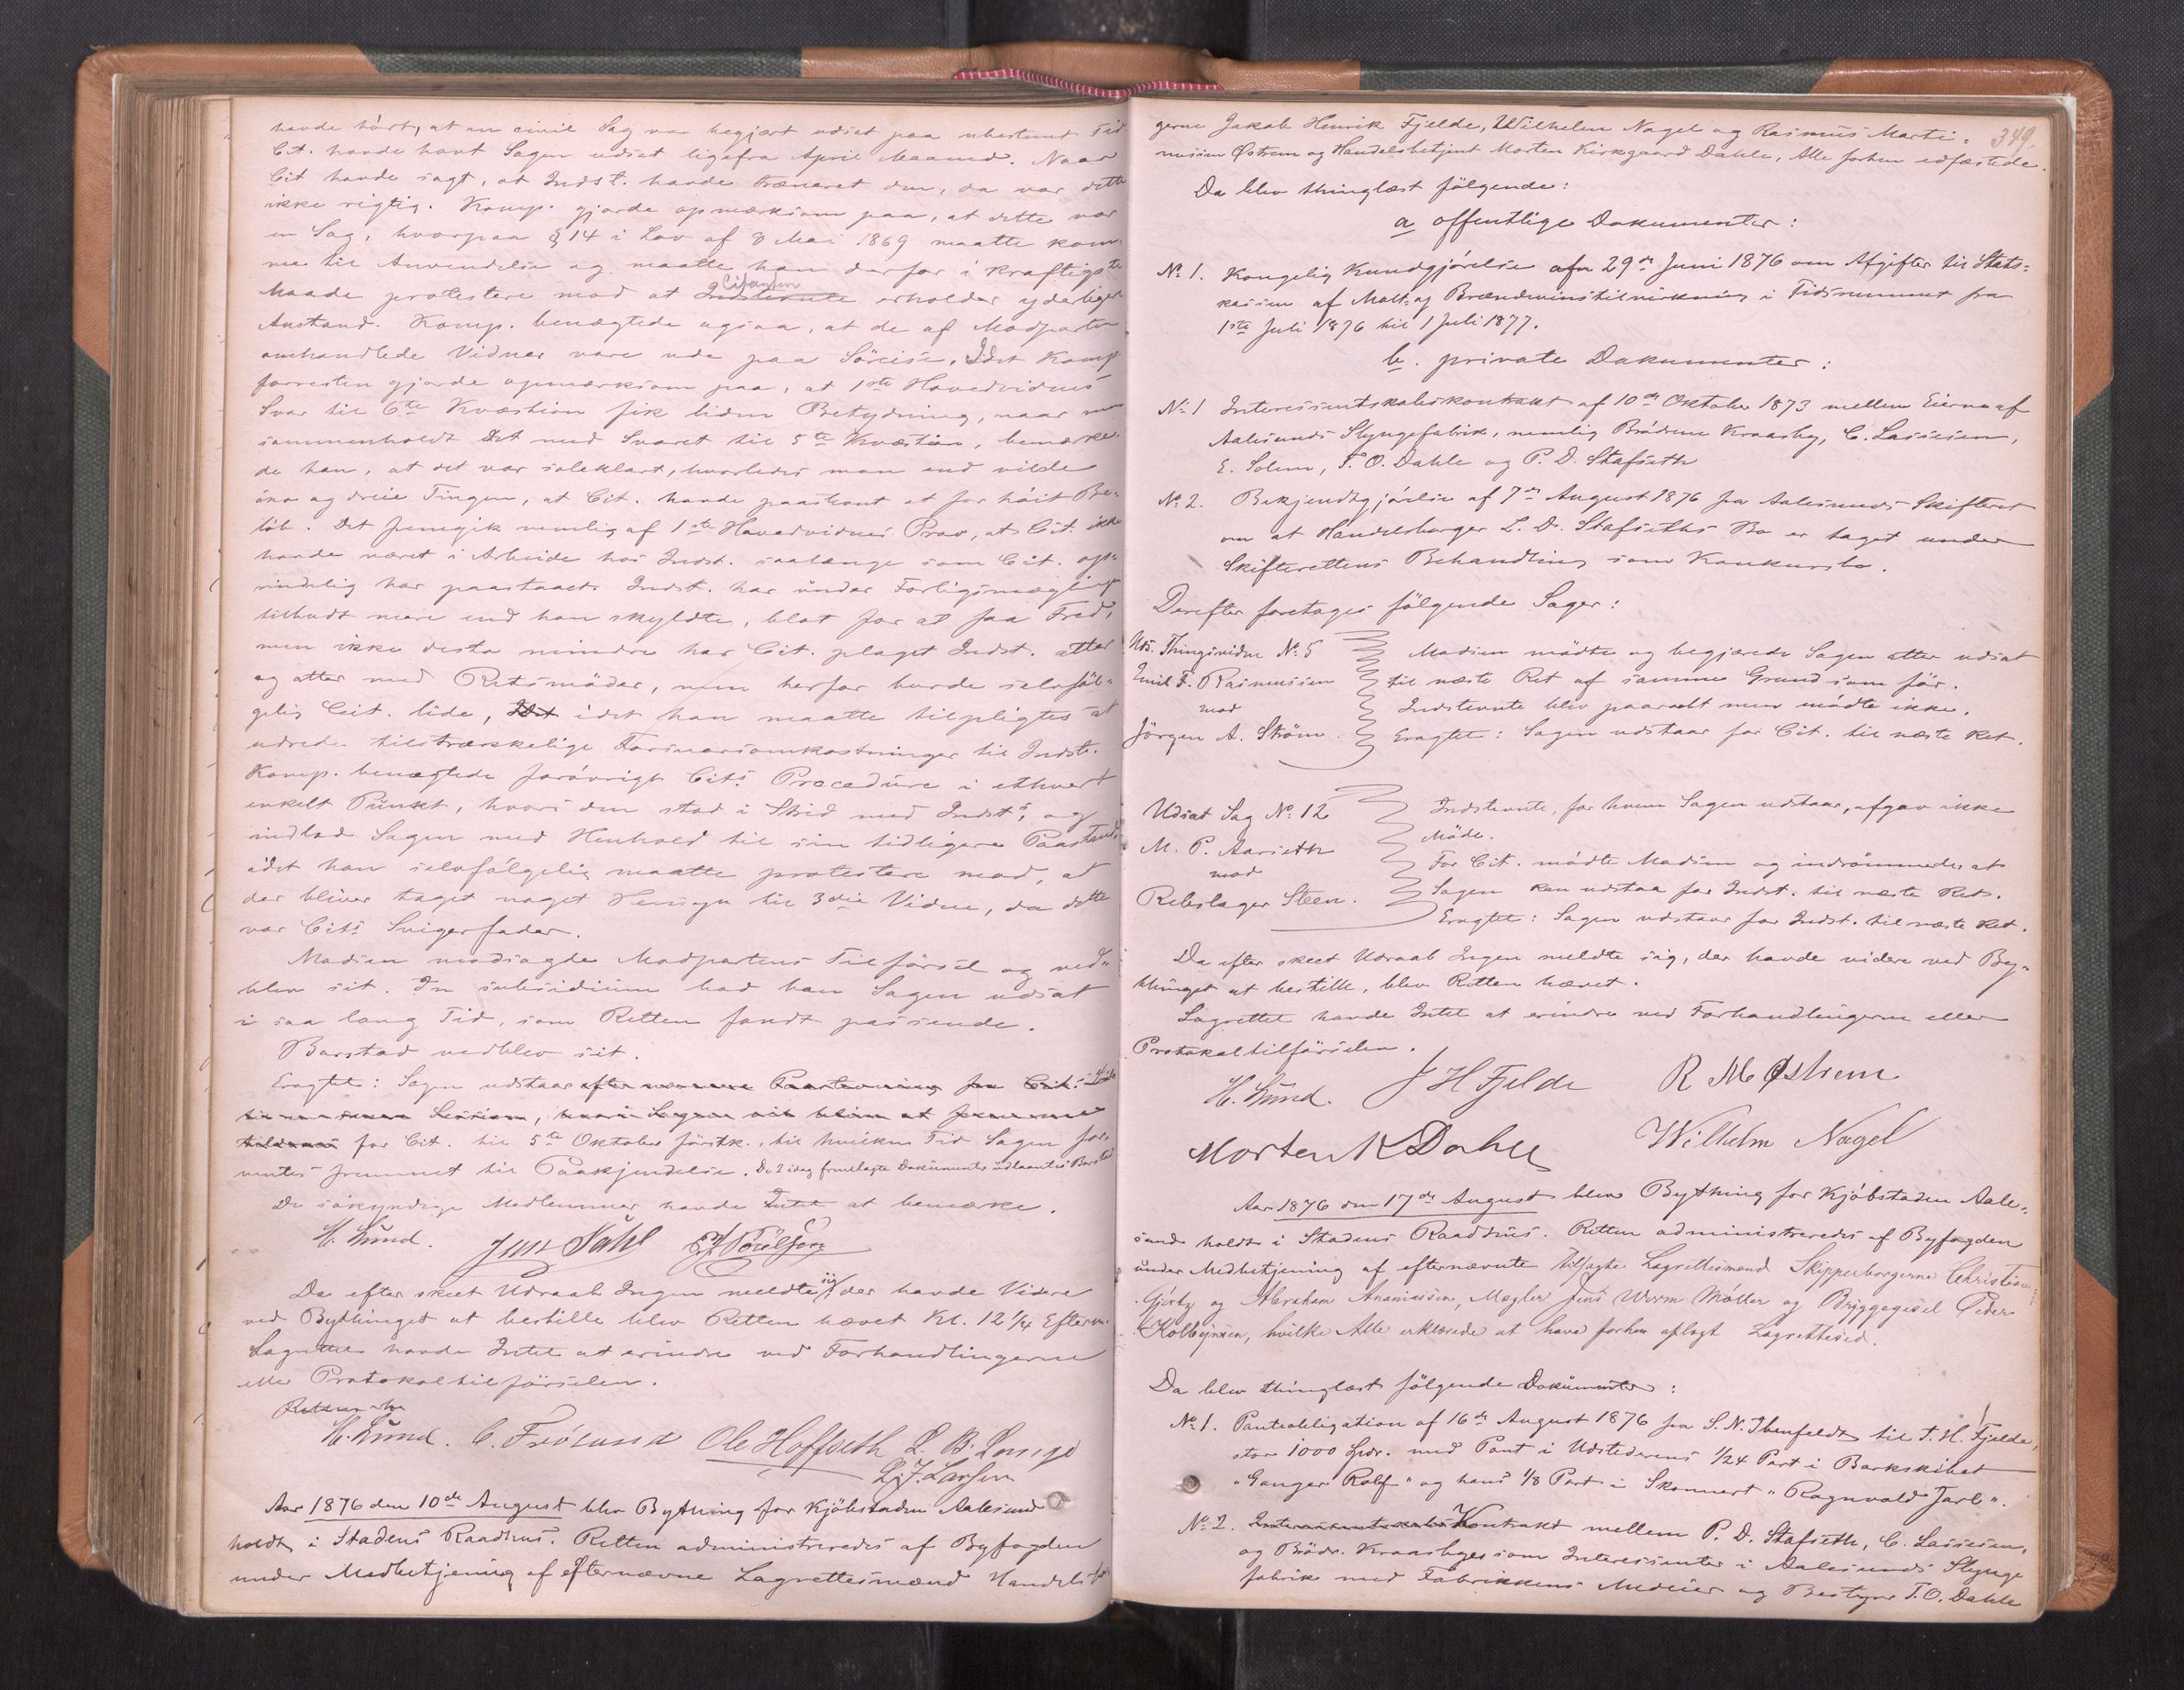 havde hørt, at en civil Sag var begjært udsat paa ubestemt Tid
Cit. havde havt Sagen udsat ligefra April Maaned. Naar
Cit havde sagt, at Indst. havde trænaret den, da var dette
ikke rigtig. Komp. gjorde opmærksom paa, at dette var
en Sag, hvorpaa § 14 i Lov af 8 Mai 1869 maatte kom-
me til Anvendelse og maatte han derfor i kraftigste
Maade protestere mod at Indstevnte Citanten erholder yderligere
Anstand. Komp. benægtede ogsaa, at de af Modparten
omhandlede Vidner vare ude paa Söreise. Idet Komp
forresten gjorde opmærksom paa, at 1ste Hovedvidnes
Svar til 6te Kvæstion fik liden Betydning, naar man
sammenholdt det med Svaret til 5te Kvæstion, bemærke-
de han, at det var soleklart, hvorledes man end vilde
sno og dreie Tingen, at Cit. havde paastaaet et for höit Be-
löb. Det fremgik nemlig af 1ste Hovedvidnes Prov, at Cit. ikke
havde været i Arbeide hos Indst. saalænge som Cit. op-
rindelig har paastaaet. Indst. har under Forligsmægling
tilbudt mere end han skyldte, blot for at faa Fred,
men ikke desto mindre har Cit. plaget Indst. atter
og atter med Retsmöder, men herfor burde selvföl-
gelig Cit. lide, Idet idet han maatte tilpligtes at
udrede tilstrækkelige Forsvarsomkostninger til Indst.
Komp. benægtede forövrigt Cits Procedure i ethvert
enkelt Punkt, hvori den stod i Strid med Indsts, og
indlod Sagen med Henhold til sin tidligere Paastand
idet han selvfölgelig maatte protestere mod, at
der bliver taget noget Hensyn til 3die Vidne, da dette
var Cits Svigerfader.
Madsen modsagde Modpartens Tilförsel og ved-
blev sit. In subsidium bad han Sagen udsat
i saa lang Tid, som Retten fandt passende.
Barstad vedblev sit.
Eragtet: Sagen udstaar efter nærmere Paastevning fra Cits Side
til næste Session, hvori Sagen vil blive at fremme
for Cit. til 5te Oktober förstk., til hvilken Tid Sagen for-
ventes fremmet til Paakjendelse. De 2 idag fremlagte Dokumenter udlaantes Barstad
De sökyndige Medlemmer havde Intet at bemærke.
H. Lund. Jens Dahl
Da efter skeet Udraab Ingen meldte sig, der havde Videre
ved Bythinget at bestille blev Retten hævet Kl. 12 1/4 Efterm.
Lagrettet havde Intet at erindre ved Forhandlingerne
eller Protokoltilförselen.
H. Lund. C. Frösund Ole Hoffseth L. B.
L. J. Larsen
Aar 1876 den 10de August blev Bything for Kjöbstaden Aalesund
holdt i Stadens Raadhus. Retten administreredes af Byfogden
under Medbetjening af efternævne Lagrettesmænd Handelsbor-
349.
gerne Jakob Henrik Fjelde, Wilhelm Nagel og Rasmus Marti-
nussen Østrem og Handelsbetjent Morten Kirkgaard Dahle, Alle forhen edfæstede.
Da blev thinglæst fölgende:
a offentlige Dokumenter:
No 1. Kongelig Kundgjörelse afn 29de Juni 1876 om Afgifter til Stats-
kassen af Malt- og Brændevinstilvirkning i Tidsrummet fra
1ste Juli 1876 til 1 Juli 1877.
b. private Dokumenter:
No 1 Interessentskabskontrakt af 10de Oktober 1873 mellem Eierne af
Aalesunds Slyngefabrik, nemlig Brödrene Kraasby, C. Lassesen,
E. Solem, T. O. Dahle og P. D. Stafseth
No 2. Bekjendtgjörelse af 7de August 1876 fra Aalesunds Skifteret
om at Handelsborger L. D. Stafseths Bo er taget under
Skifterettens Behandling som Konkursbo.
Derefter foretages fölgende Sager:
Uds. Thingsvidne No 5
Emil F. Rasmussen
mod
Jörgen A. Ström.
Madsen mödte og begjærede Sagen atter udsat
til næste Ret af samme Grund som för.
Indstevnte blev paaraabt men mödte ikke.
Eragtet: Sagen udstaar for Cit. til næste Ret.
Udsat Sag No 12
M. P. Aarseth
mod
Rebslager Steen.
Indstevnte, for hvem Sagen udstaar, afgav ikke
Möde.
For Cit. mödte Madsen og indrömmede, at
Sagen kan udstaa for Indst. til næste Ret.
Eragtet: Sagen udstaar for Indst. til næste Ret.
Da efter skeet Udraab Ingen meldte sig, der havde videre ved By-
thinget at bestille, blev Retten hævet.
Lagrettet havde Intet at erindre ved Forhandlingerne eller
Protokoltilförselen.
H. Lund. J H Fjelde R M Østrem
Morten K Dahle Wilhelm Nagel
Aar 1876 den 17de August blev Bything for Kjöbstaden Aale-
sund holdt i Stadens Raadhus. Retten administreredes af Byfogden
under Medbetjening af efternævnte tilsagte Lagrettesmænd Skipperborgerne Christian
Gjörtz og Abraham Ananiassen, Mægler Jens Worm Møller og Bryggegesel Peder
Kolbejnsen, hvilke Alle erklærede at have forhen aflagt Lagrettesed.
Da blev thinglæst fölgende Dokumenter:
No 1. Panteobligation af 16de August 1876 fra S. N. Ibenfeldt til J. H. Fjelde,
stor 1000 Spdr. med Pant i Udstederens 1/24 Part i Barkskibet
"Ganger Rolf" og hans 1/8 Part i Skonnert "Ragnvald Jarl".
No 2. Interessentskabs Kontrakt mellem P. D. Stafseth, C. Lassesen,
og Brödr. Kraasbye som Interessenter i Aalesunds Slynge
fabrik med Fabrikkens Medeier og Bestyrer T. O. Dahle